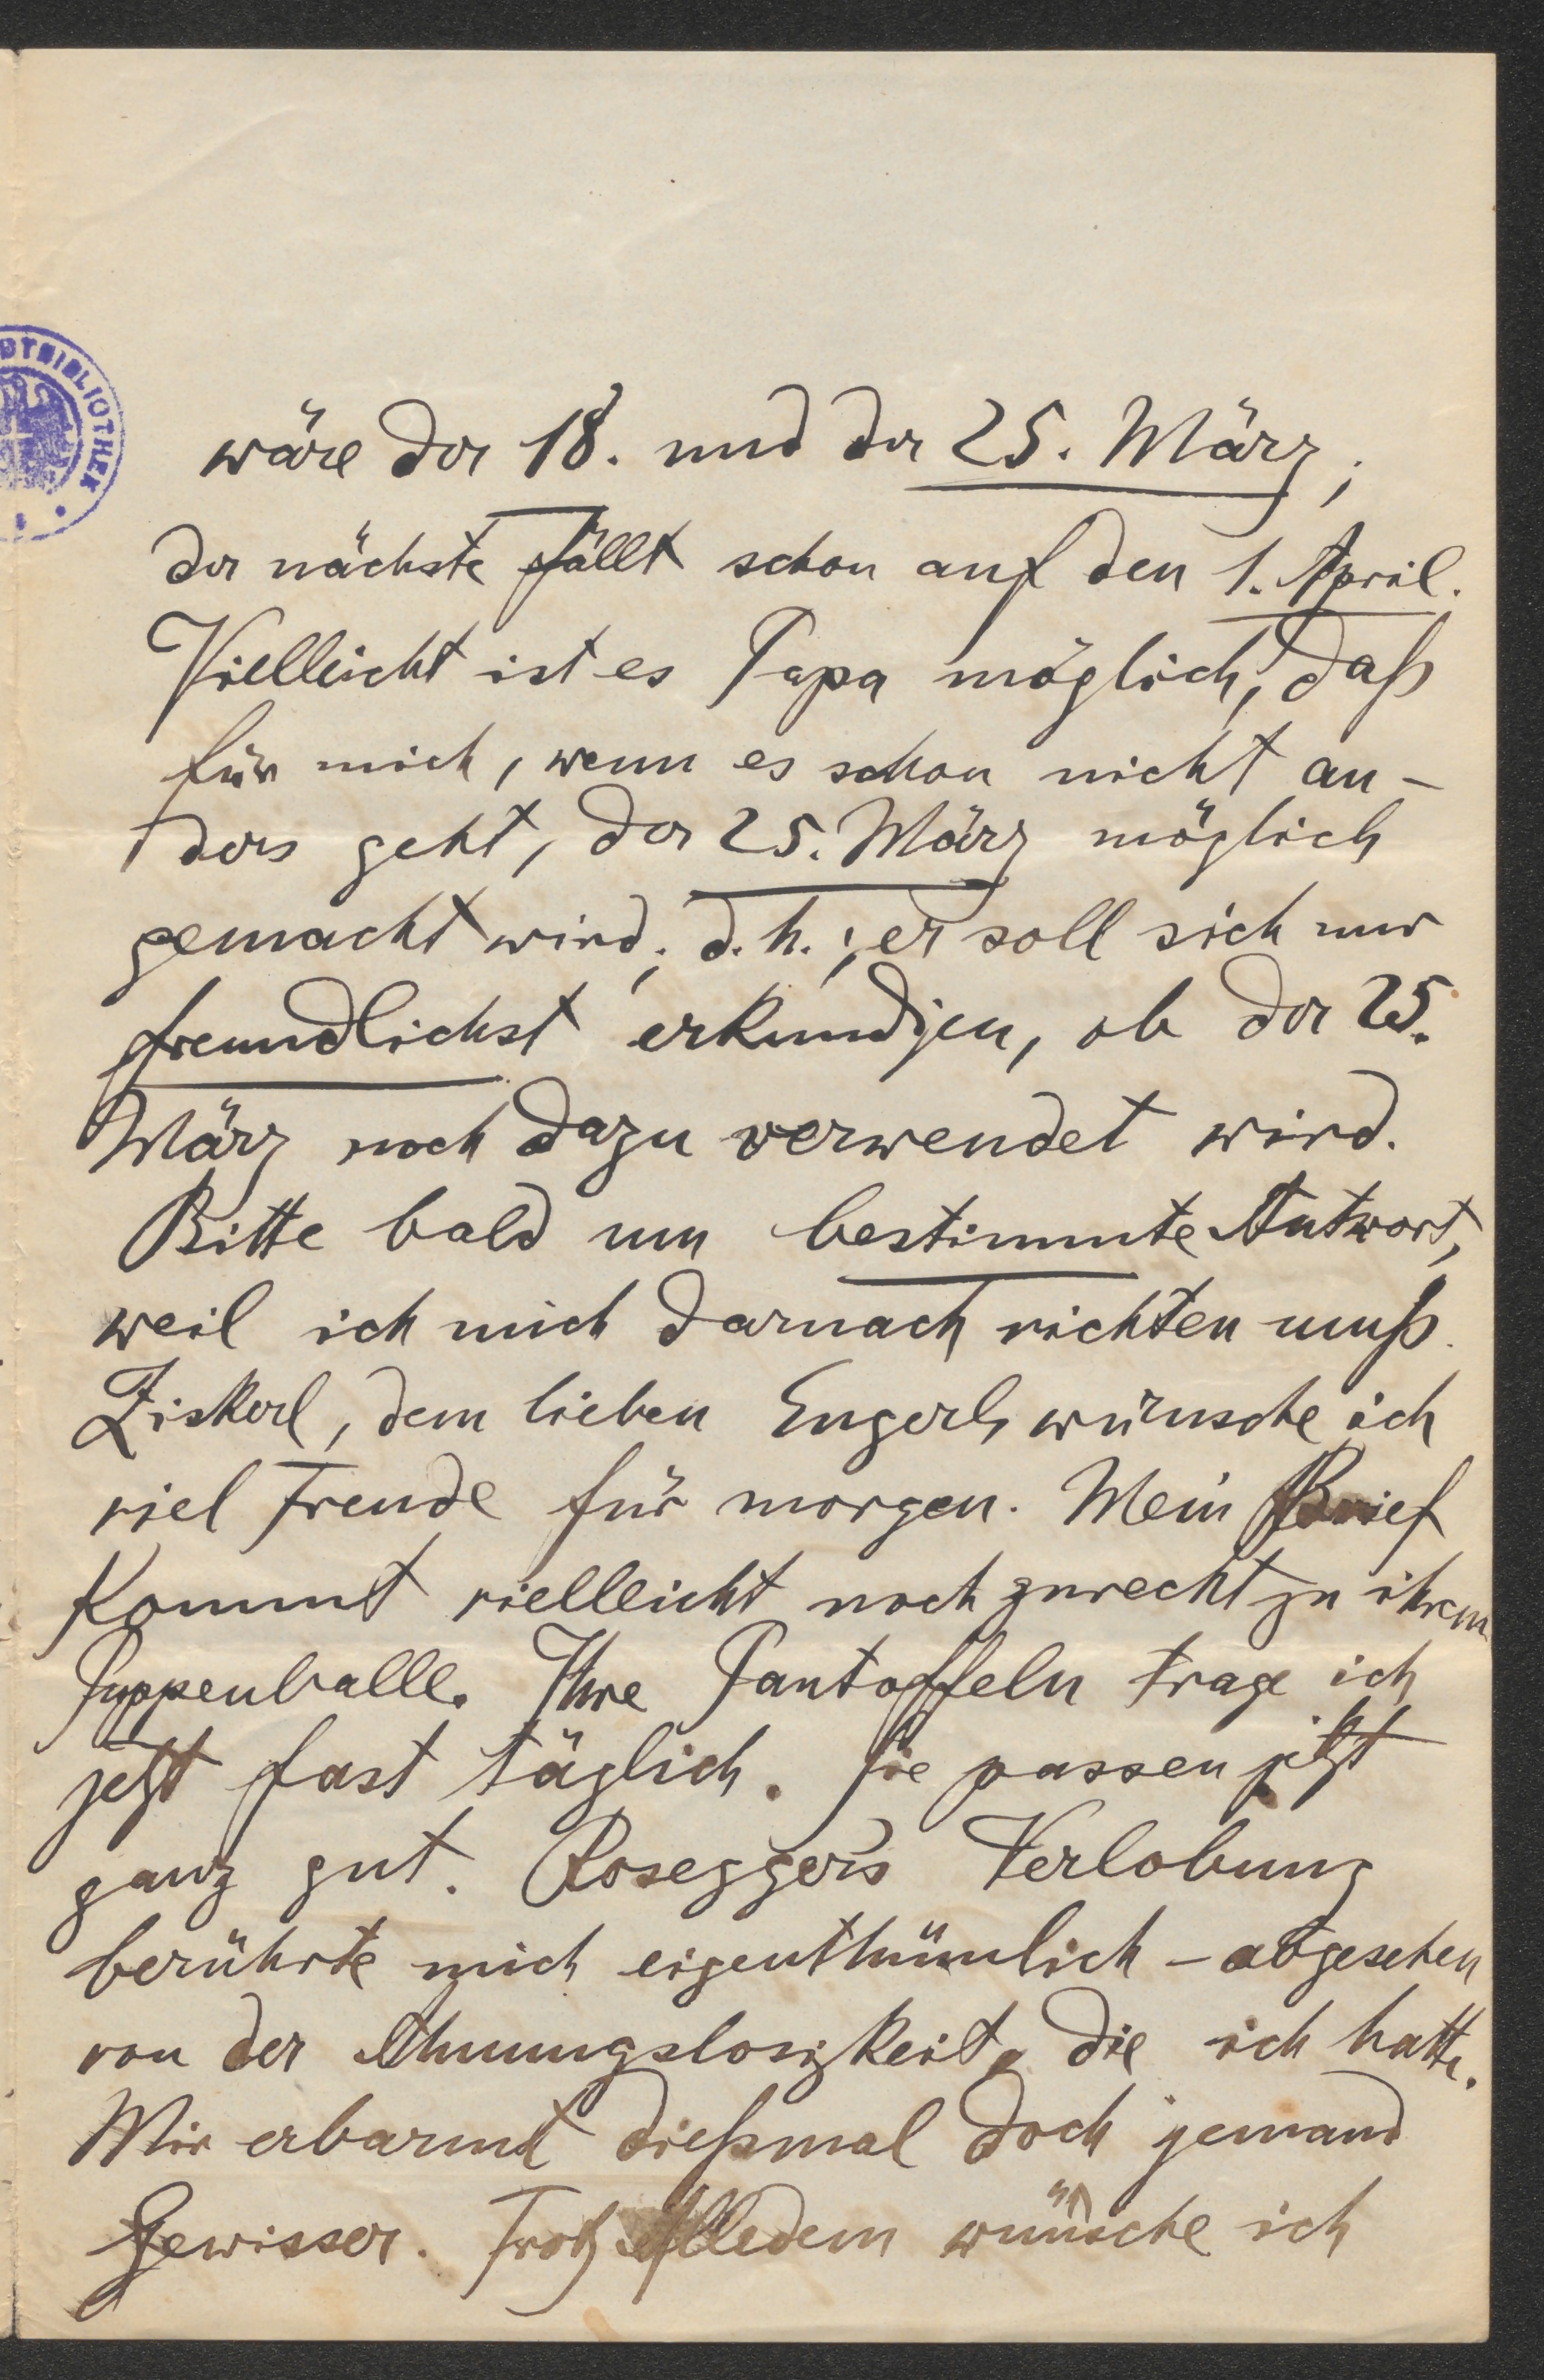 DTBIBLIOTHEK
wäre der 18. und der 25. März;
der nächste fällt schon auf den 1. April.
Vielleicht ist es Papa möglich, daß
für mich, wenn es schon nicht an-
ders geht, der 25. März möglich
gemacht wird; d. h.; er soll sich nur
freundlichst erkundigen, ob der 25.
März noch dazu verwendet wird.
Bitte bald um bestimmte Antwort,
weil ich mich darnach richten muß.
Ziskerl, dem lieben Engerl, wünsche ich
viel Freude für morgen. Mein Brief
kommt vielleicht noch zurecht zu ihrem
Puppenballe. Ihre Pantoffeln trage ich
jetzt fast täglich. Sie passen jetzt
ganz gut. Rosegger's Verlobung
berührte mich eigenthümlich – abgesehen
von der Ahnungslosigkeit, die ich hatte.
Mir erbarmt dießmal doch jemand
Gewisser. Trotz Alledem wünsche ich